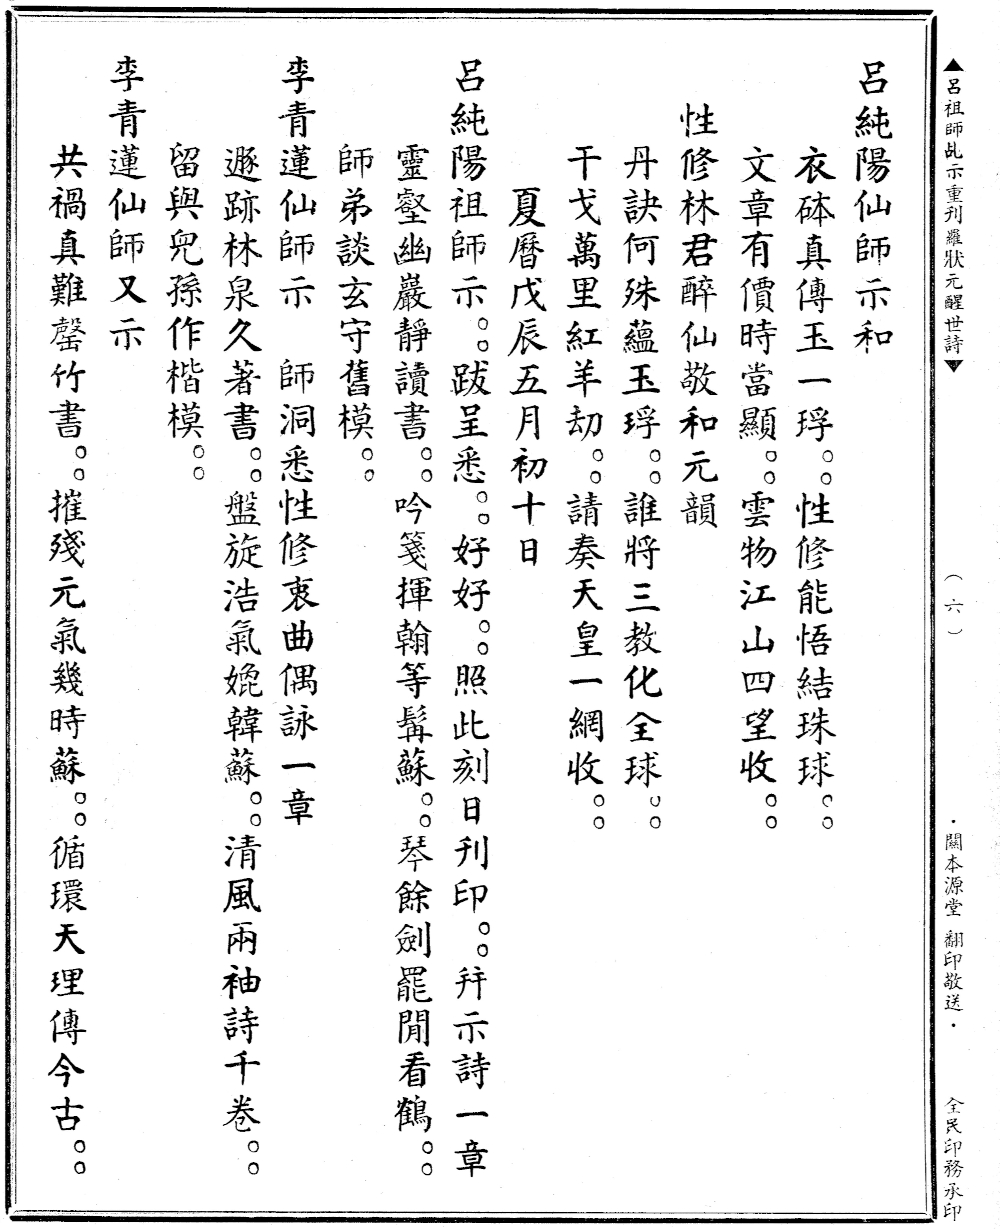 ▲呂祖師乩示重刋羅狀元醒世詩▼ (六) ・闕本源堂 翻印敬送・ 全民印務承印
呂純陽仙師示和
衣砵真傳玉一琈。。性修能悟結珠球。。
文章有價時當顯。。雲物江山四望收。。
性修林君醉仙敬和元韻
丹訣何殊蘊玉琈。。誰將三教化全球。。
干戈萬里紅羊劫。。請奏天皇一網收。。
夏曆戊辰五月初十日
呂純陽祖師示。。跋呈悉。。好好。。照此刻日刋印。。幷示詩一章
靈壑幽巖靜讀書。。吟箋揮翰等髯蘇。。琴餘劍罷閒看鶴。。
師弟談玄守舊模。。
李青蓮仙師示 師洞悉性修衷曲偶詠一章
遯跡林泉久著書。。盤旋浩氣媲韓蘇。。清風兩袖詩千卷。。
留與兒孫作楷模。。
李青蓮仙師又示
共禍真難罄竹書。。摧殘元氣幾時蘇。。循環天理傳今古。。